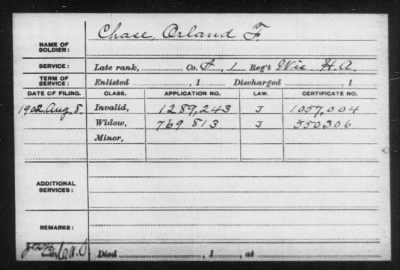 NAME OF SOLDIER: Chase, Orland F.
SERVICE: Late rank, Co. F, 1 Reg't Wis. H.A.
TERM OF SERVICE: Enlisted , 1 Discharged , 1
DATE OF FILING. CLASS. APPLICATION NO. LAW. CERTIFICATE NO.
1902 Aug. 8. Invalid, 1289,243 J 1057,004
Widow, 769 813 J 550306
Minor,
ADDITIONAL SERVICES:
REMARKS:
Died , 1 , at